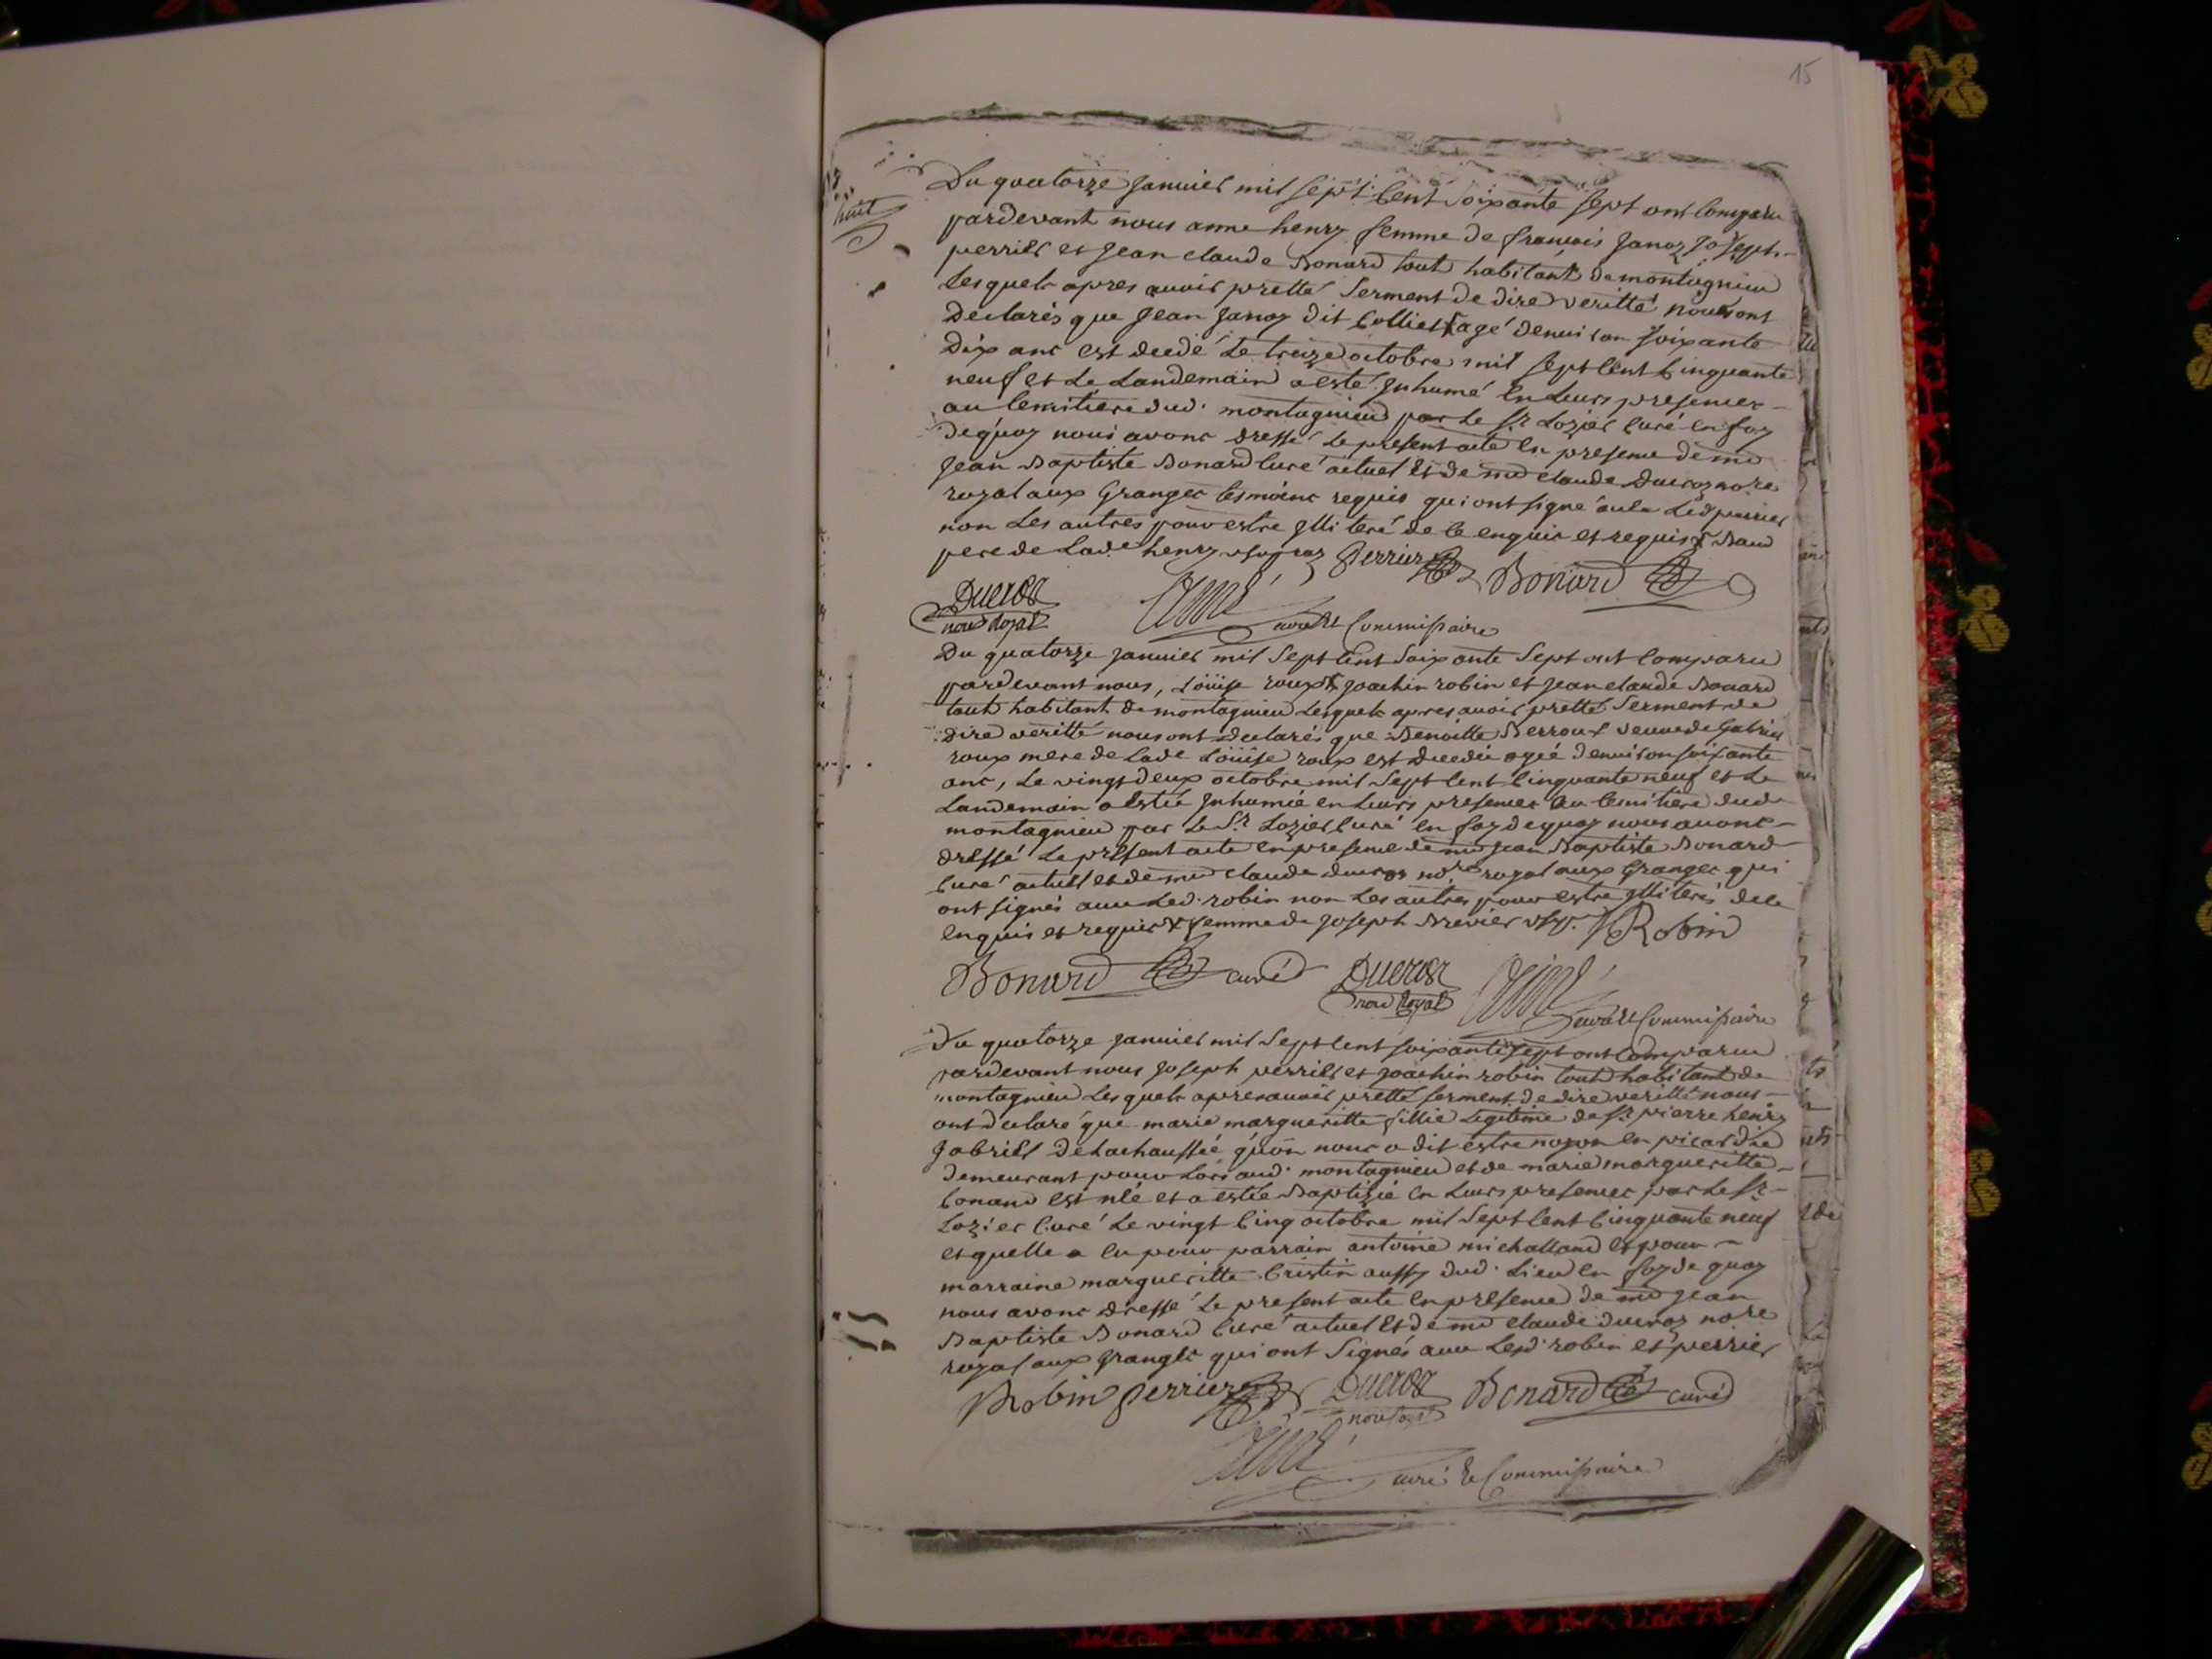 15
huit
Du quatorze Januier mil sept Cent soixante sept ont Comparu
pardevant nous anne henry femme de francois Janoz Joseph
perrier et Jean claude Bonard tout habitant de montagnieu
Lesquels apres auoir pretté Serment de dire veritté nous ont
Declarés que Jean Janoz dit Collier agé denuiron soixante
Dix ans est decedé Le treize octobre mil sept Cent Cinquante
neuf et Le Landemain a esté Inhumé en Leurs presences
au Cemitiere dud. montagnieu par Le Sr. Lozier Curé en foy
dequoy nous avons dressé Le present acte en presence de me
Jean Baptiste Bonard Curé actuel et de me claude Ducroz nore
royal aux Granges tesmoins requis qui ont signé auec Led perrier
non Les autres pour estre Illiteré de Ce enquis et requis
pere de Lade henry Perrier Bonard
Ducroz
nore Royal
curé et Commissaire
Du quatorze Januier mil Sept Cent Soixante Sept ont Comparu
pardevant nous, Loüise roux Joachin robin et Jean claude Bonard
tout habitant de montagnieu Lesquels apres auoir pretté Serment de
Dire veritté nous ont declarés que Benoitte Berroux veuve de Gabriel
roux mere de Lade Loüise roux est decedée agé denuiron soixante
ans, Le vingt deux octobre mil Sept Cent Cinquante neuf et Le
Landemain a Estée Inhumée en Leurs presences au Cemitiere dud.
montagnieu par Le Sr. Lozier Curé en foy dequoy nous auons
dressé Le present acte en presence de me Jean Baptiste Bonard
Curé actuel et de me claude ducroz nore royal aux Granges qui
ont signés auec Led. robin non Les autres pour estre Illiterés de Ce
enquis et requis femme de Joseph Brevier Robin
Bonard curé Ducroz
nore Royal
curé et Commissaire
Du quatorze Januier mil Sept Cent soixante sept ont Comparu
pardevant nous Joseph perrier et Joachin robin tout habitant de
montagnieu Lesquels apres auoir pretté serment de dire veritté nous
ont declaré que marie margueritte fillie Legitime de Sr. pierre henry
Gabriel De Lachaussée qu'on nous a dit estre noyon en picardie
demeurant pour Lors aud. montagnieu et de marie margueritte
Conand est née et a estée Baptizée en Leurs presences par Le Sr.
Lozier Curé Le vingt Cinq octobre mil Sept Cent Cinquante neuf
et quelle a eu pour parrain antoine michalland et pour
marraine margueritte Cristin aussy dud. Lieu en foy de quoy
nous avons dressé Le present acte en presence de me Jean
Baptiste Bonard Curé actuel et de me claude ducroz nore
royal aux Granges qui ont Signés auec Lesd. robin et perrier
Robin Perrier Ducroz Bonard curé
curé et Commissaire